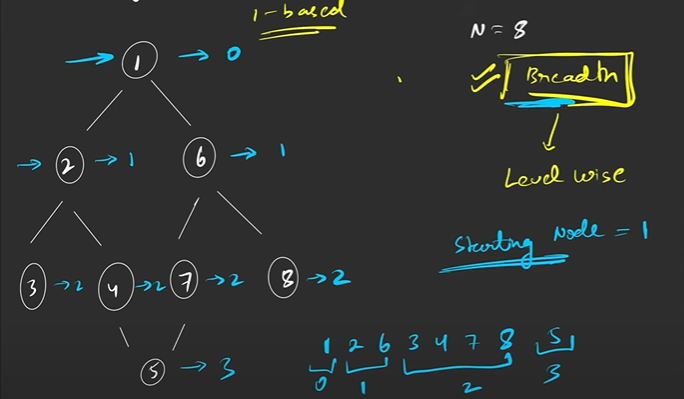 1-based
N = 8
Breadth
Level wise
Starting Node = 1
→ 1 → 0
→ 2 → 1
6 → 1
3 → 2
4 → 2
7 → 2
8 → 2
5 → 3
1 2 6 3 4 7 8 5
0 1 2 3